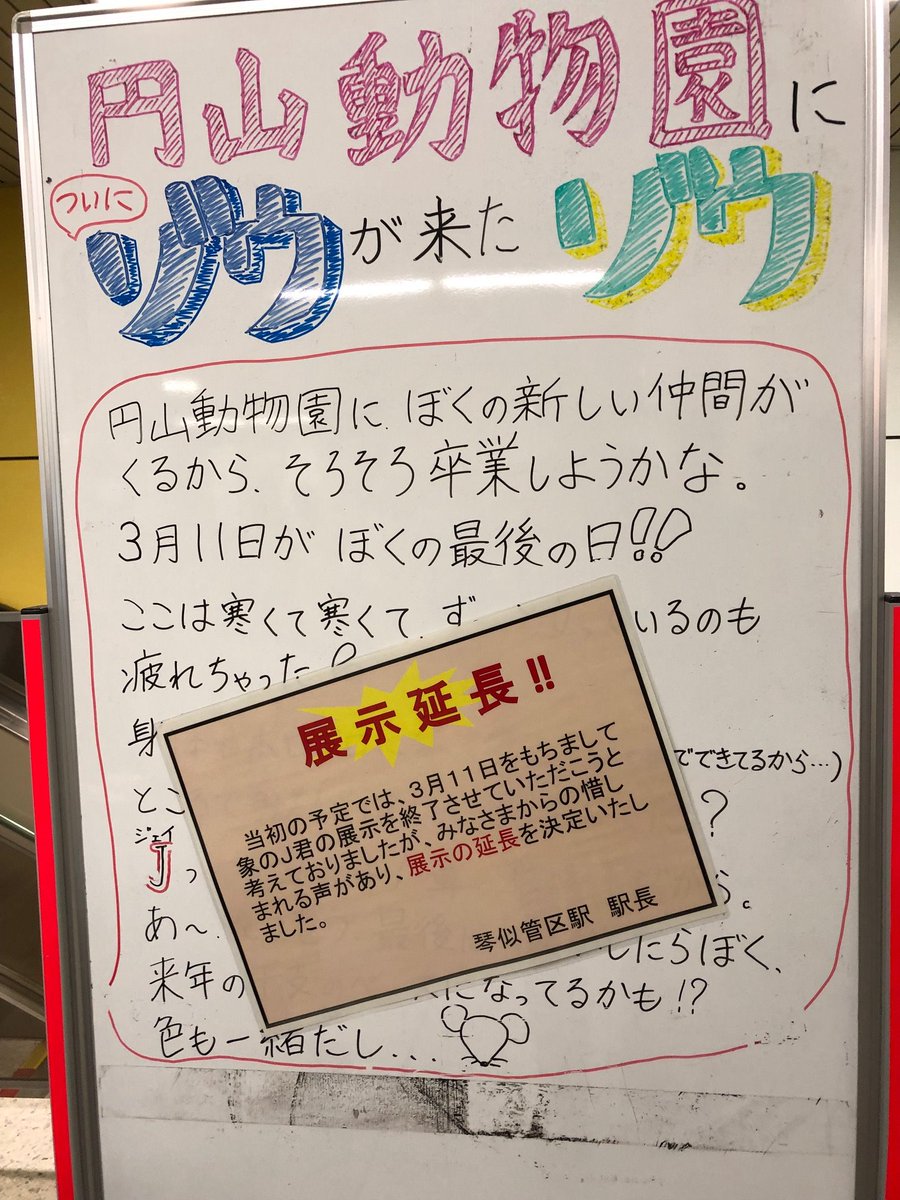 円山動物園に
ついに
ゾウが来たゾウ
円山動物園に、ぼくの新しい仲間が
くるから、そろそろ卒業しようかな。
3月11日が ぼくの最後の日!!
ここは寒くて寒くて、ず
いるのも
疲れちゃった
身
でできてるから…)
とこ
?
ジェイ
Jっ
あ〜
。
来年の
したらぼく、
になってるかも!?
色も一緒だし...
展示延長!!
当初の予定では、3月11日をもちまして
象のJ君の展示を終了させていただこうと
考えておりましたが、みなさまからの惜し
まれる声があり、展示の延長を決定いたし
ました。
琴似管区駅 駅長